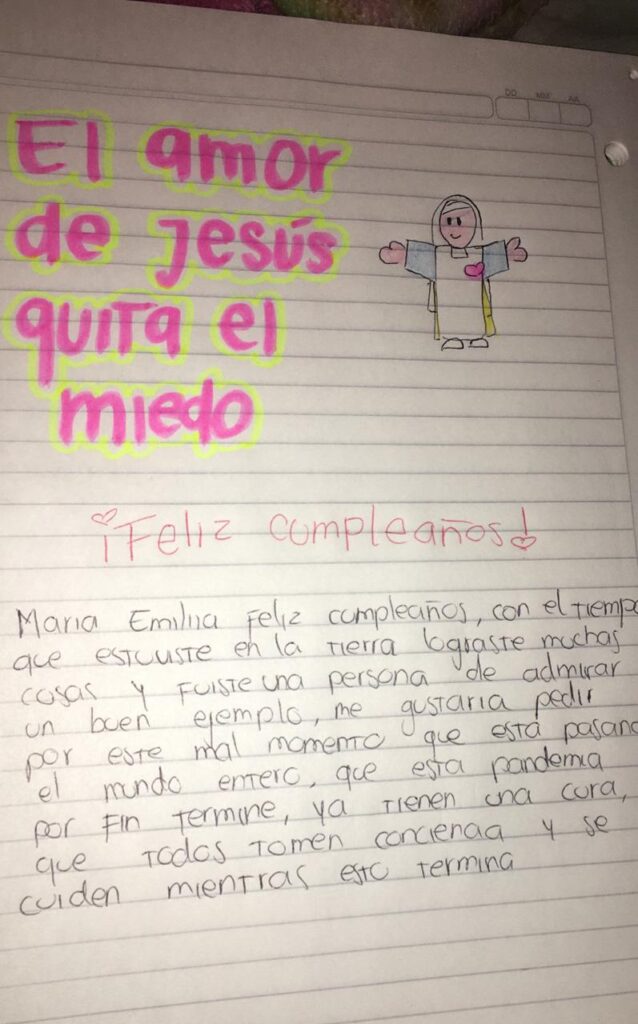 El amor
de Jesús
quita el
miedo
¡Feliz cumpleaños!
Maria Emilia Feliz cumpleaños, con el tiempo
que estuviste en la tierra lograste muchas
cosas y fuiste una persona de admirar
un buen ejemplo, me gustaria pedir
por este mal momento que está pasand
el mundo entero, que esta pandemia
por fin termine, ya tienen una cura,
que todos tomen conciencia y se
cuiden mientras esto termina